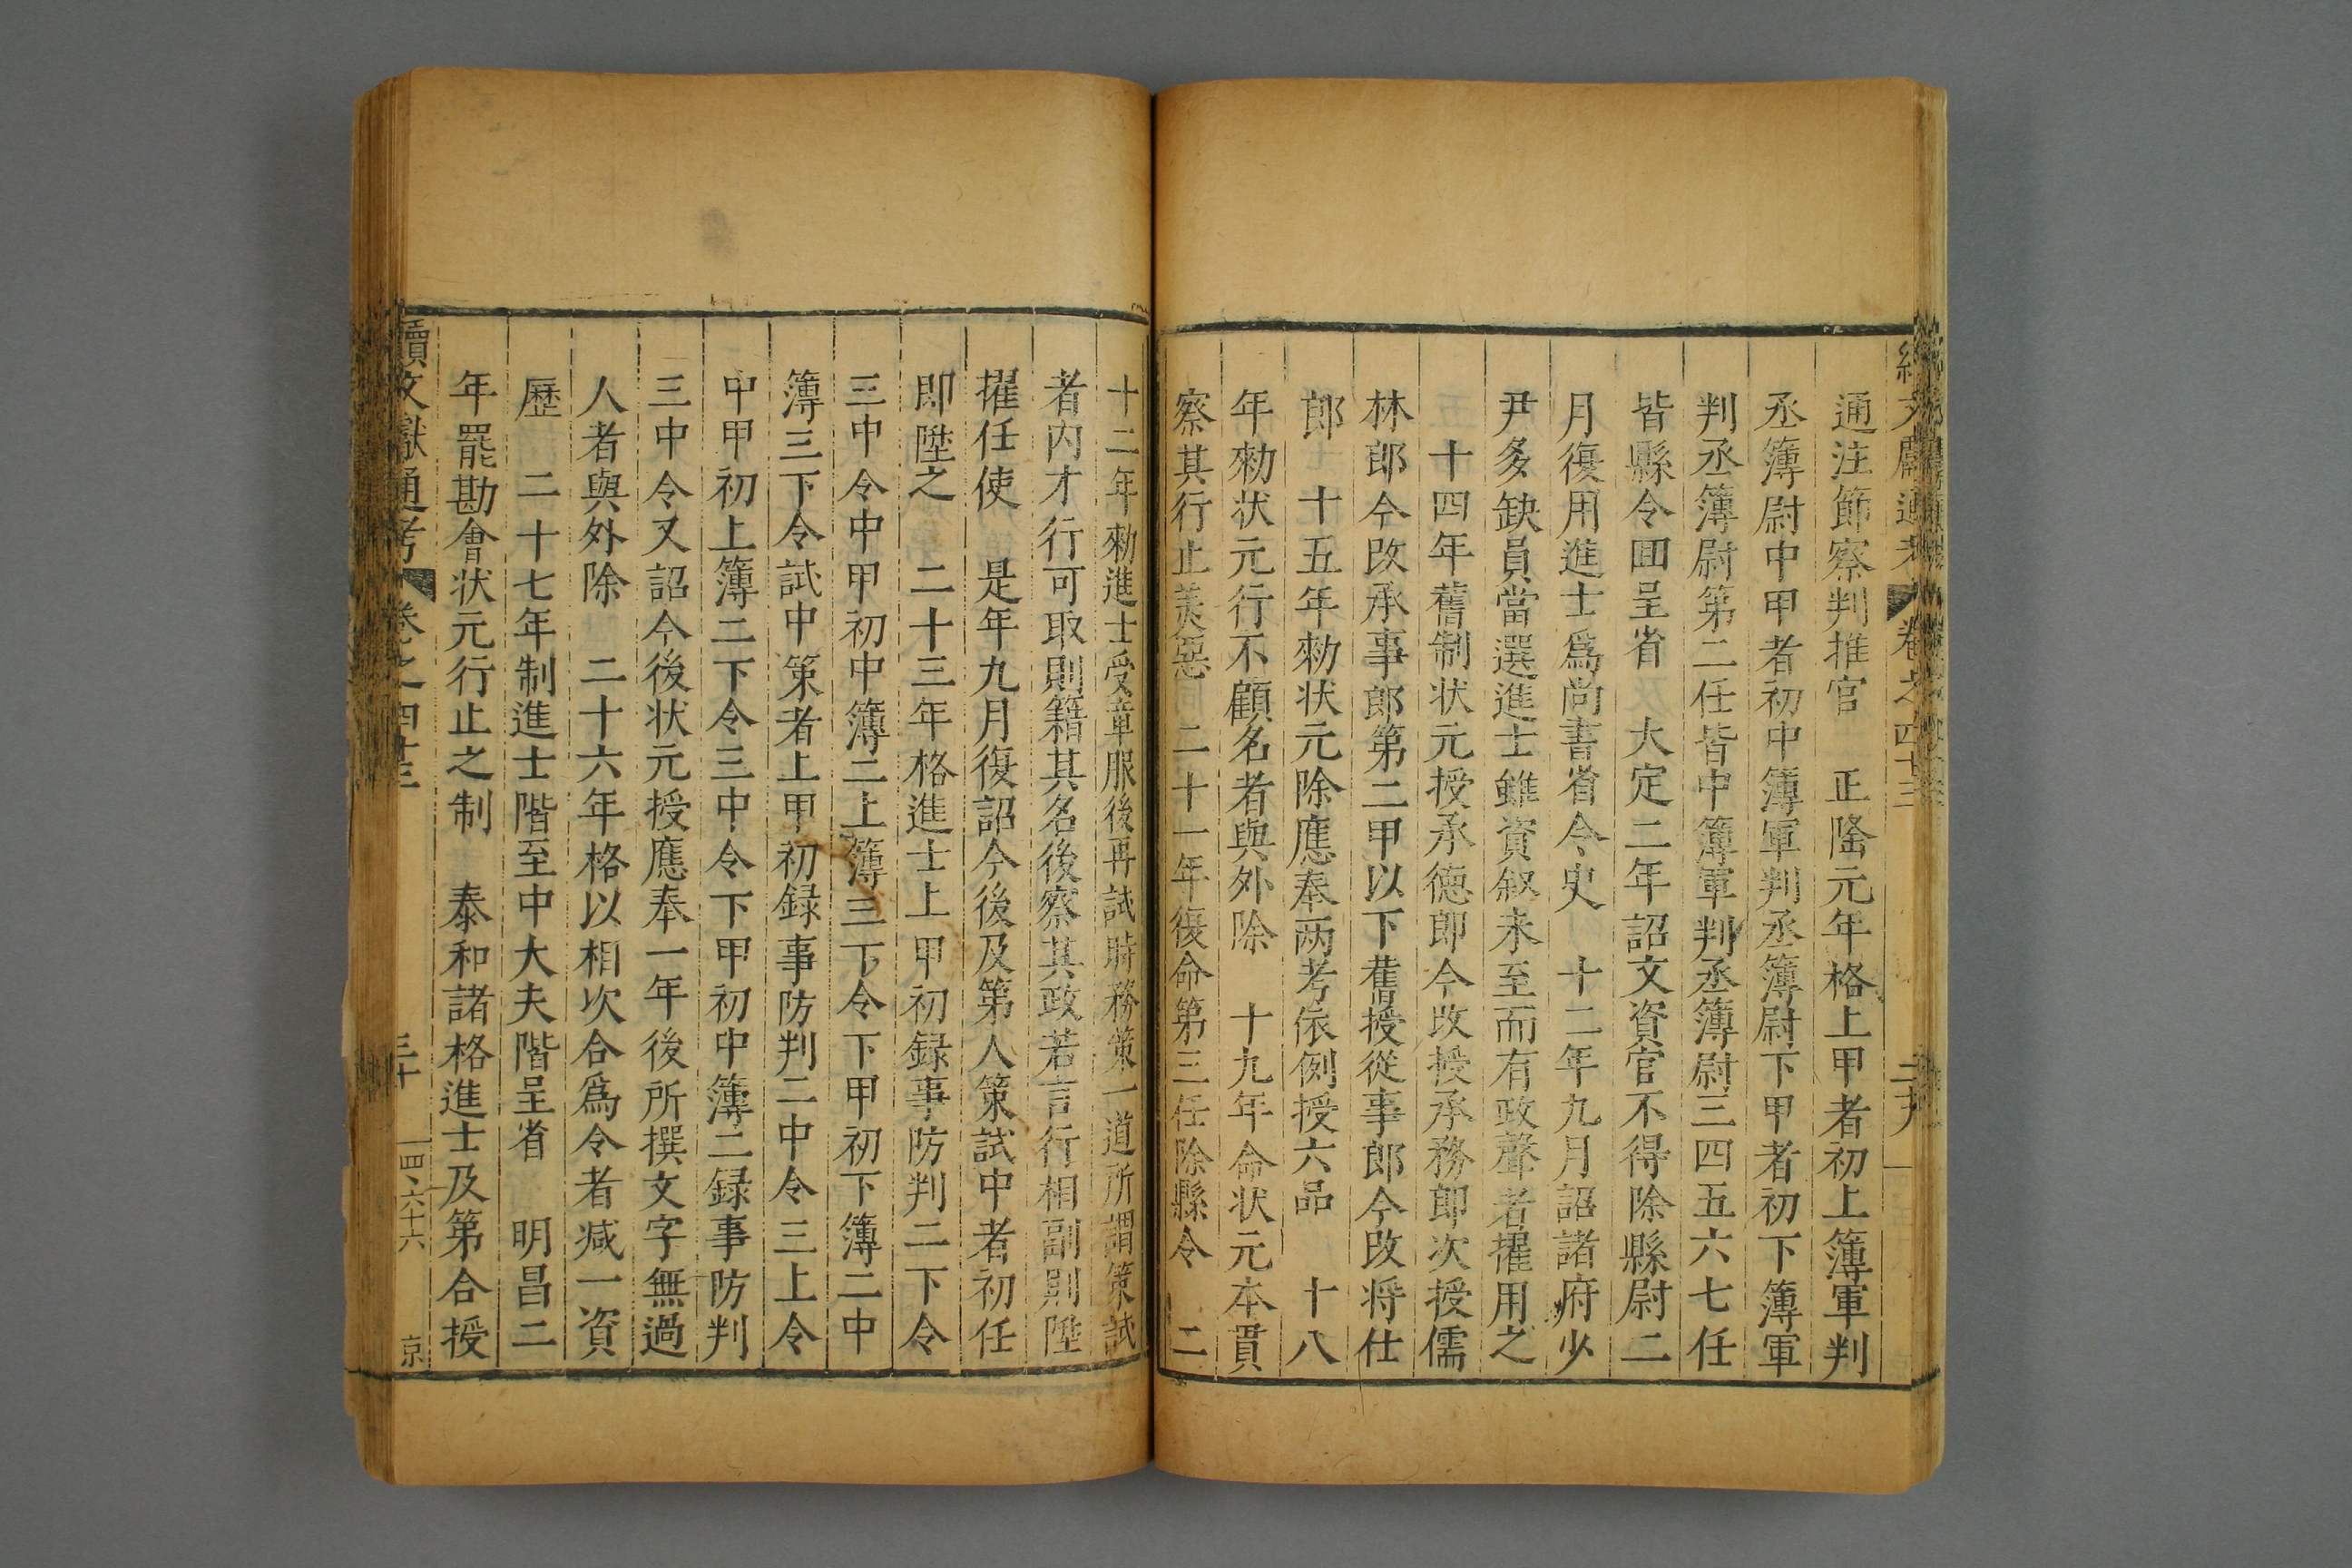 續文獻通考 卷之四十三 二十九
通注節察判推官 正隆元年格上甲者初上簿軍判
丞簿尉中甲者初中簿軍判丞簿尉下甲者初下簿軍
判丞簿尉第二任皆中簿軍判丞簿尉三四五六七任
皆縣令囬呈省 大定二年詔文資官不得除縣尉二
月復用進士爲尚書省令史 十二年九月詔諸府少
尹多缺員當選進士雖資叙未至而有政聲者擢用之
十四年舊制状元授承德郎今改授承務郎次授儒
林郎今改承事郎第二甲以下舊授從事郎今改将仕
郎 十五年勑状元除應奉两考依例授六品 十八
年勑状元行不顧名者與外除 十九年命状元本貫
察其行止美惡 二十一年復命第三任除縣令 二
十二年勑進士受章服後再試時務策一道所謂策試
者内才行可取則籍其名後察其政若言行相副則陞
擢任使 是年九月復詔今後及第人策試中者初任
即陞之 二十三年格進士上甲初録事防判二下令
三中令中甲初中簿二上簿三下令下甲初下簿二中
簿三下令試中策者上甲初録事防判二中令三上令
中甲初上簿二下令三中令下甲初中簿二録事防判
三中令又詔今後状元授應奉一年後所撰文字無過
人者與外除 二十六年格以相次合爲令者减一資
歷 二十七年制進士階至中大夫階呈省 明昌二
年罷勘會状元行止之制 泰和諸格進士及第合授
續文獻通考 卷之四十三 三十 一四、六十六 京